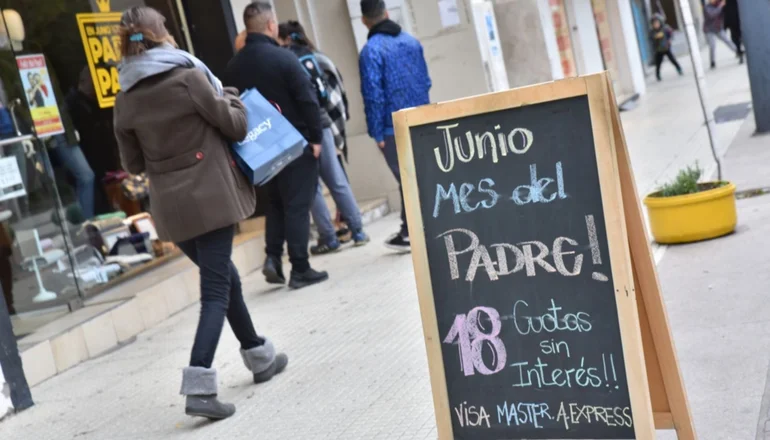 Junio
Mes del
PADRE!
18 Cuotas
sin
Interés!!
VISA MASTER. A.EXPRESS
Legacy